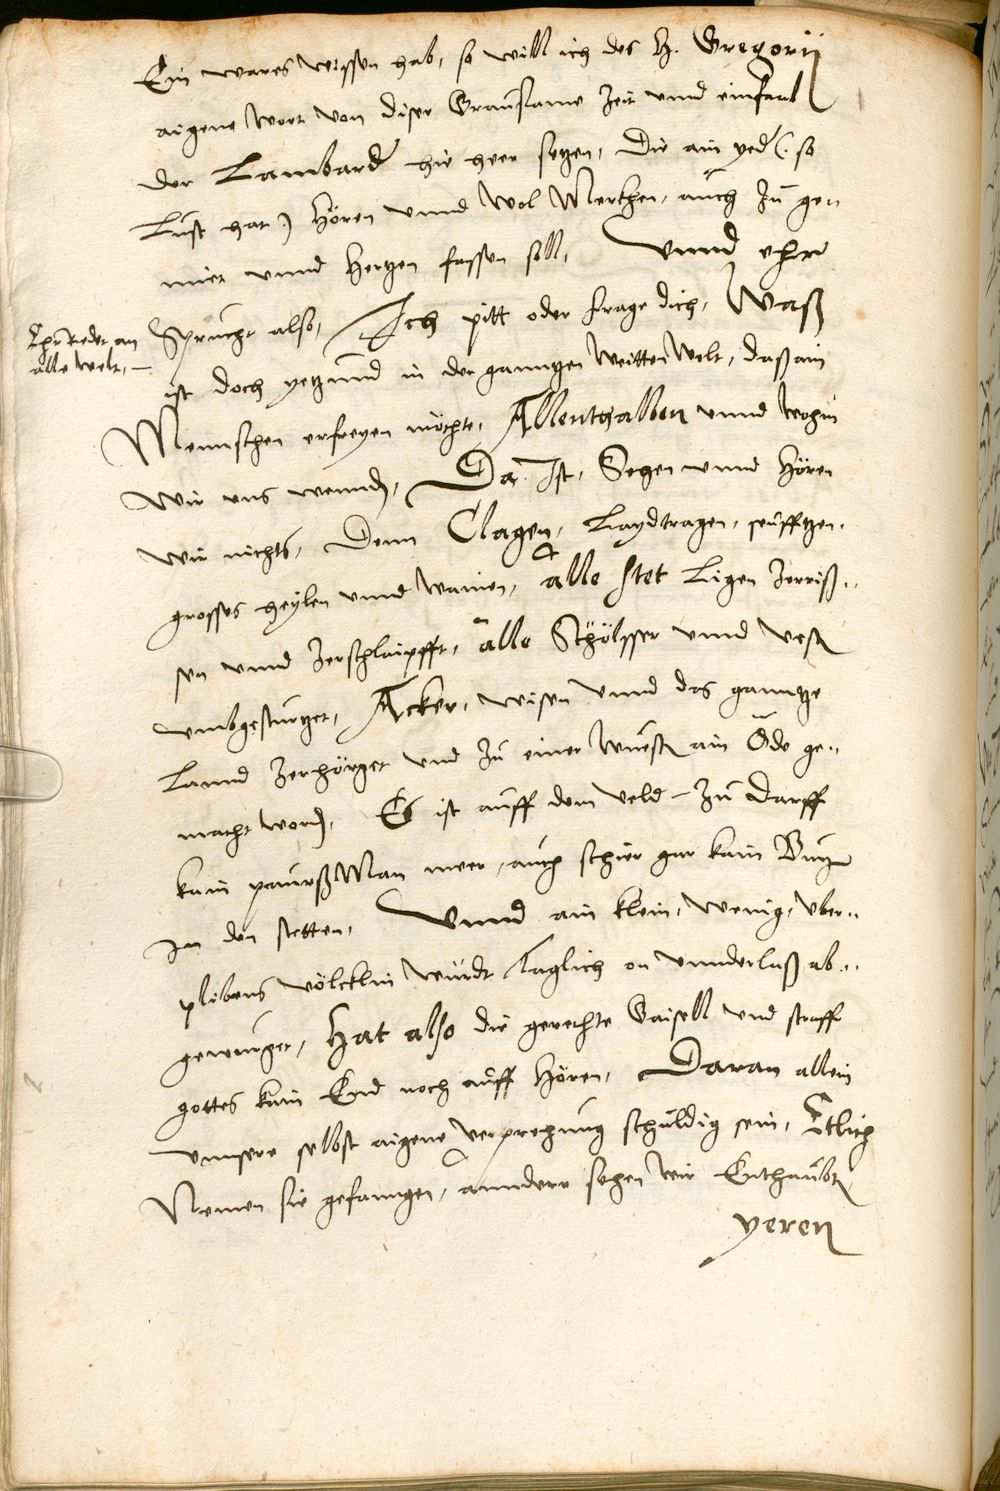 Ein wares wissen hab, so will ich des H. Gregorij
aigene wort von diser Grausame Zeit unnd einfaal
der Lambarde hie heer setzen, Die ain yede (: so
Lust hat :) Hören unnd Wol Merkhen, auch Zu ge„
miet unnd Hertzen fassen soll, Vnnd ehr
Spricht also, Ich pitt oder frage dich, Waß
Er redet an
alle welt, —
ist doch yetzund in der ganntzen Weitten Welt, daß ain
Mennschen erfreyen möchte, Allenthalben unnd Wohin
Wir uns wennden, Da Ist, Segen unnd Hören
wir nichts, Denn Clagen, Laydtragen, seufftzen,
grosses heylen unnd Wainen, alle Stet Ligen Zerriß„
sen unnd Zerschlaipfft, alle Schlösser unnd Vest
umbgestürtzet, Acker, wisen unnd das ganntze
Lannd Zerhörget und Zu einer Wuest ain Öde ge„
macht worden, Es ist auff dem veld — Zu Darff
kain paurß Man meer, auch schier gar kain Burger
In den stetten, Vnnd ain klein, Wenig, Vber„
plibens völcklin würdt taglich on unnderlaß ab„
gewürget, Hat also die gerechte Gaisell und straff
gottes kain End noch auff Hören, Daran allein
unnsere selbst aigene verprechung schuldig sein, Etlich
Nemen sie gefanngen, anndere sehen wir Enthaubten
yeren